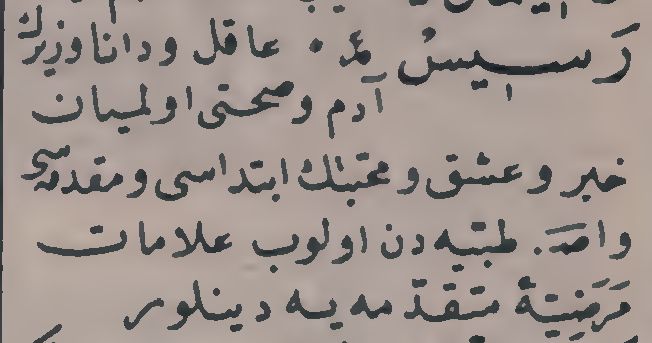 رَسِيسْ ع. عاقل و دانا و زيرك
آدم و صحتى اولميان
خبر و عشق و محبتك ابتداسى و مقدمه سى
واصـ. طبيه دن اولوب علامات
مَرَضِيَّهٔ متقدّمه يه دينلور